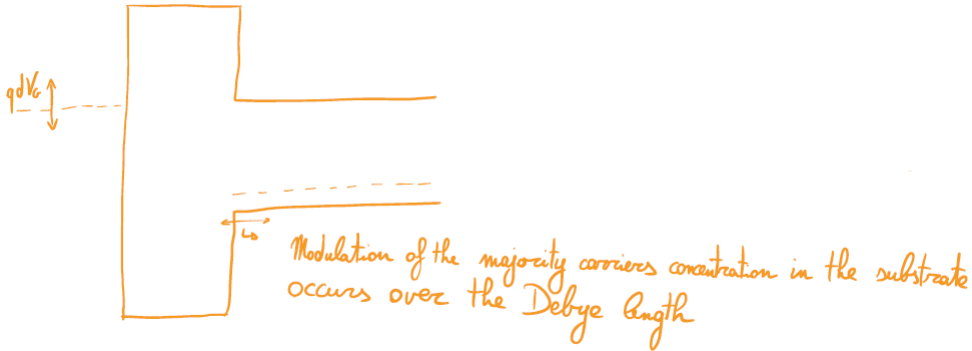 qdVG
LD
Modulation of the majority carriers concentration in the substrate
occurs over the Debye length